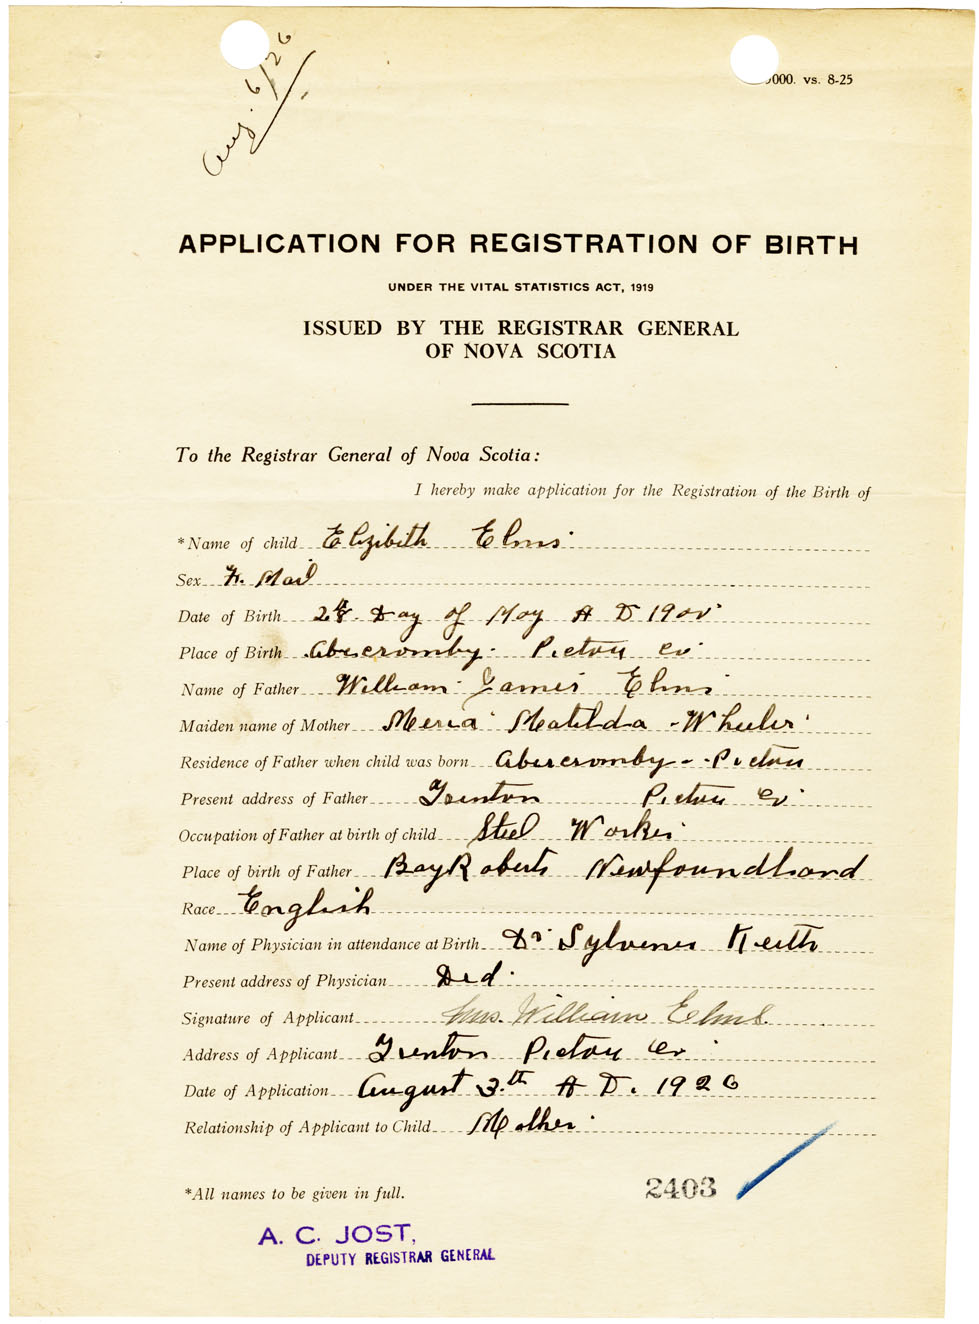 Aug. 6/26
000. vs. 8-25
APPLICATION FOR REGISTRATION OF BIRTH
UNDER THE VITAL STATISTICS ACT, 1919
ISSUED BY THE REGISTRAR GENERAL
OF NOVA SCOTIA
To the Registrar General of Nova Scotia:
I hereby make application for the Registration of the Birth of
*Name of child Elizibith Elms
Sex F. Mail
Date of Birth Day of May A D
Place of Birth Abercromby. Pictou Co
Name of Father William James Elms
Maiden name of Mother Meria Matilda Wheeler
Residence of Father when child was born Abercromby - Pictou
Present address of Father Trenton Pictou Co
Occupation of Father at birth of child Steel Worker
Place of birth of Father Bay Roberts Newfoundland
Race English
Name of Physician in attendance at Birth Dr Keith
Present address of Physician Ded.
Signature of Applicant Mrs. William Elms
Address of Applicant Trenton Pictou Co
Date of Application August 3.th A D. 1926
Relationship of Applicant to Child Mother
*All names to be given in full.
2403
A. C. JOST,
DEPUTY REGISTRAR GENERAL